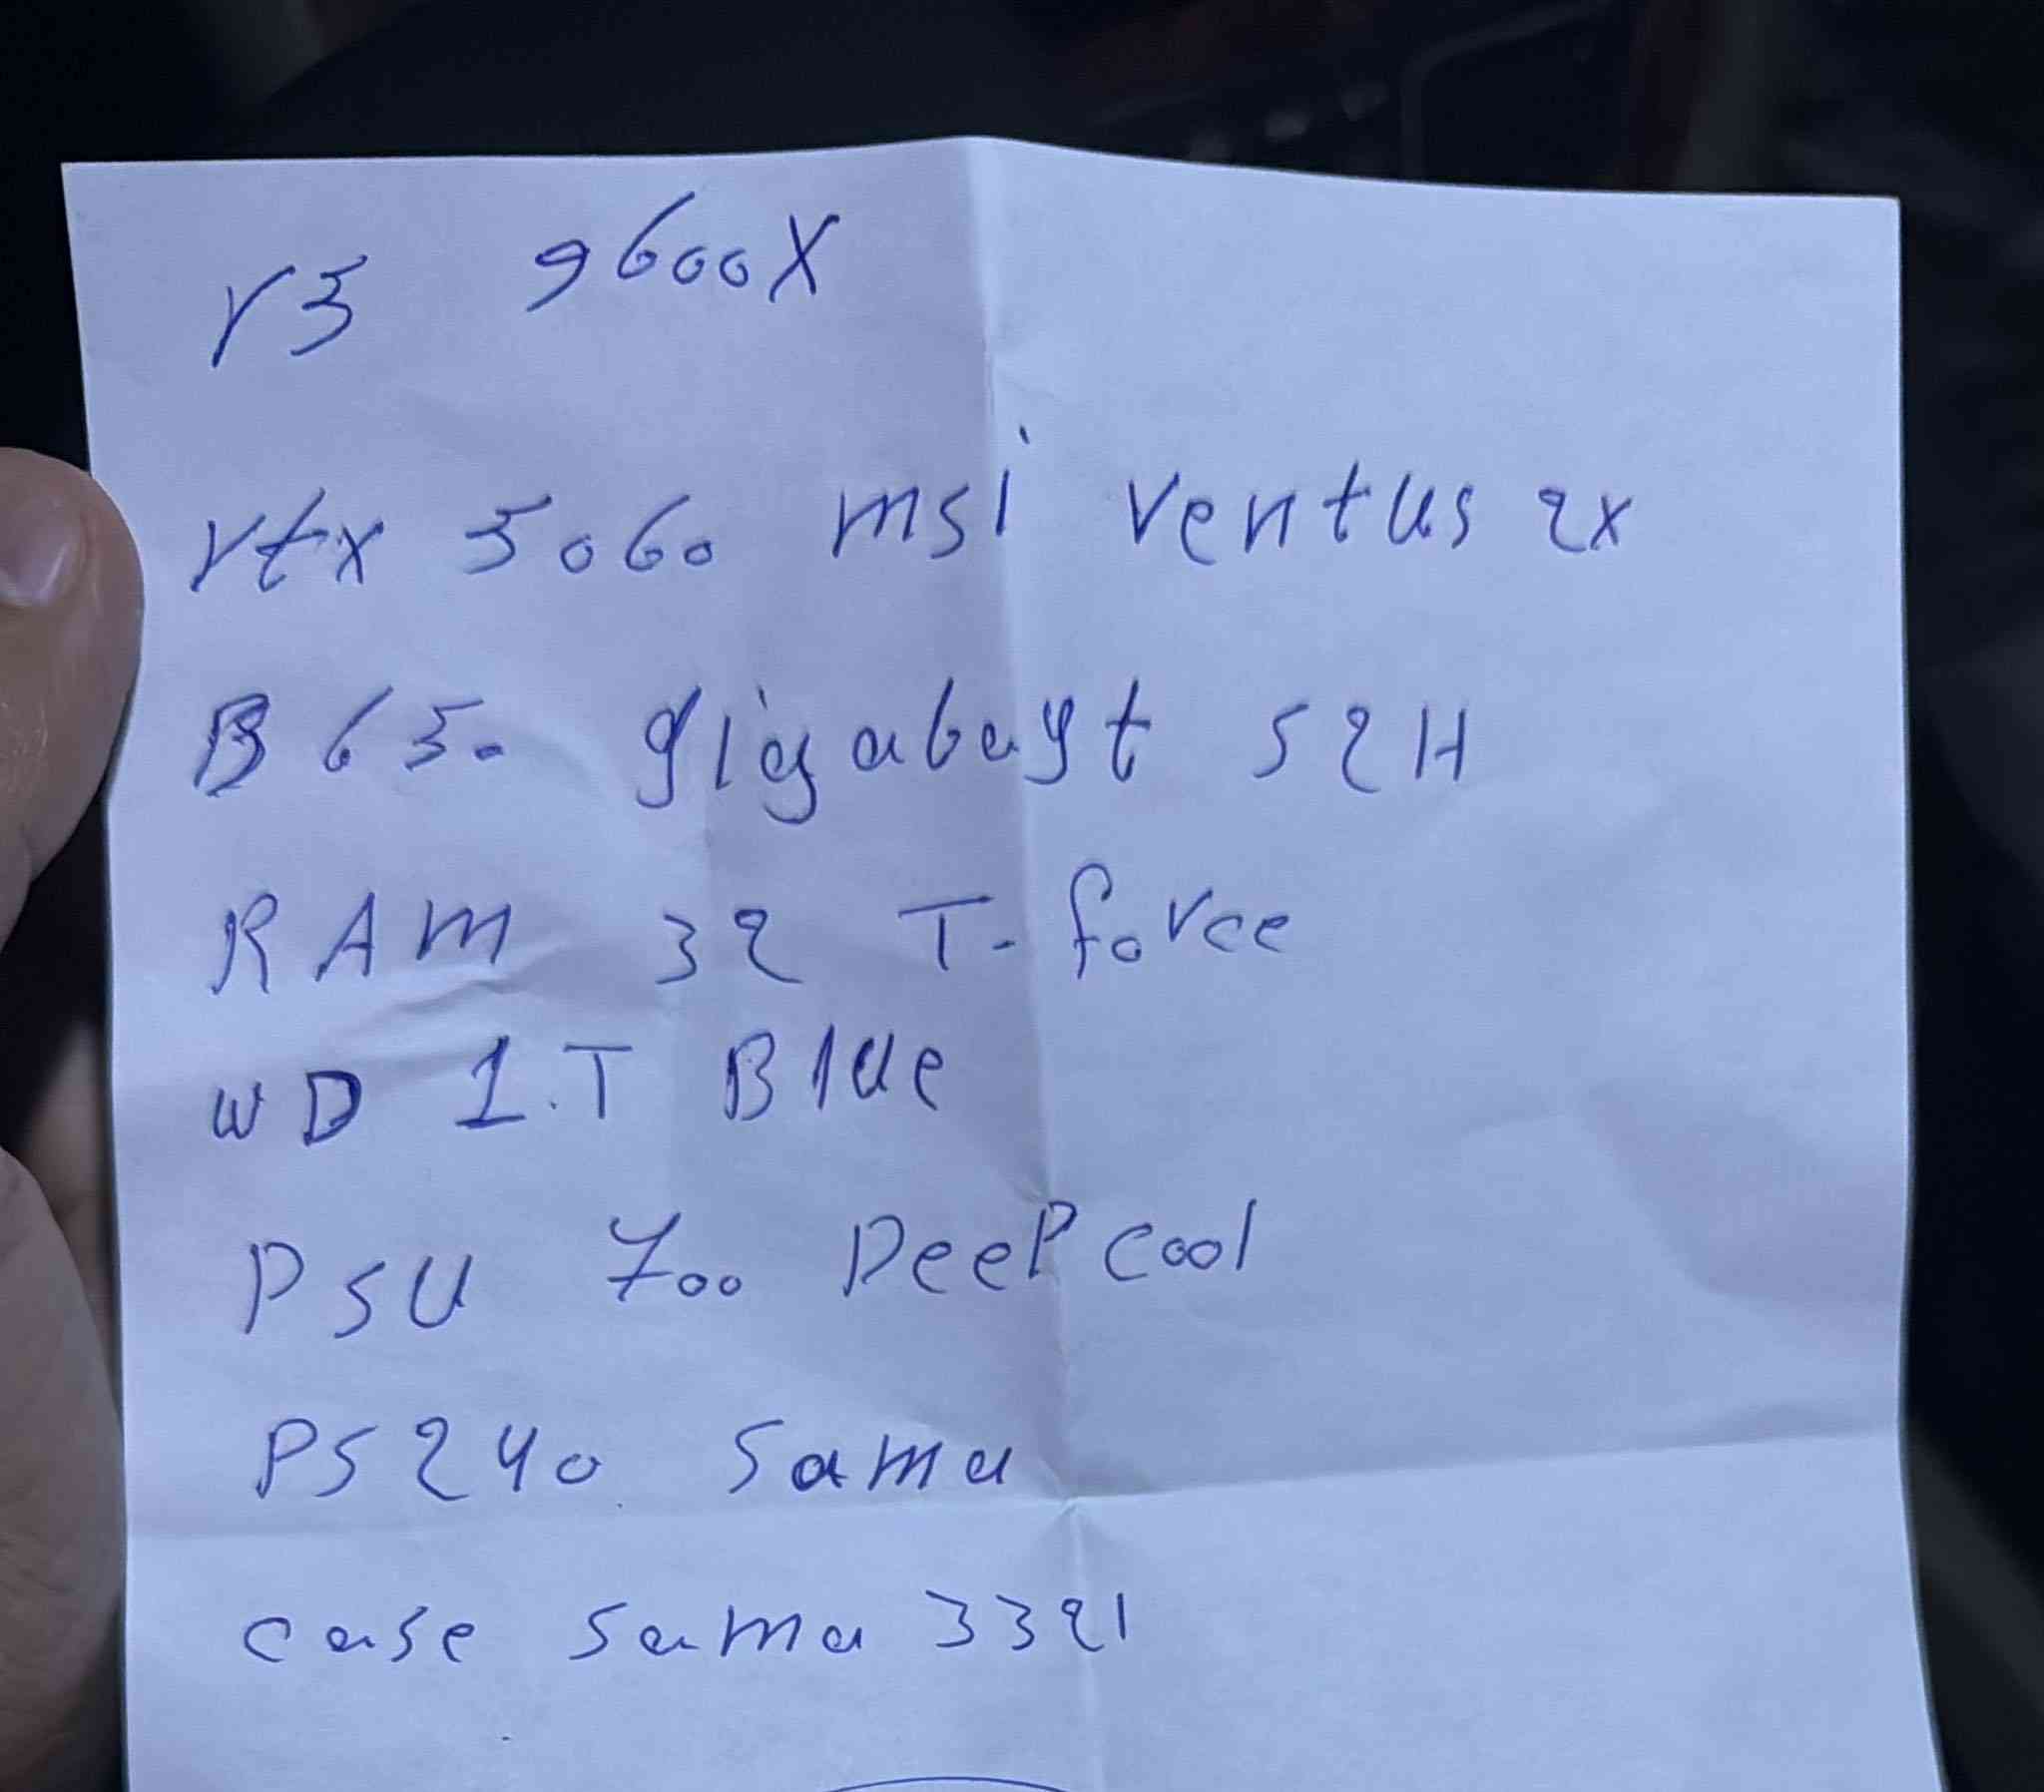 r5 9600X
rtx 5060 msi ventus 2x
B650 gigabayt S2H
RAM 32 T-force
WD 1.T Blue
PSU 700 DeeP cool
PS240 Sama
case sama 3321